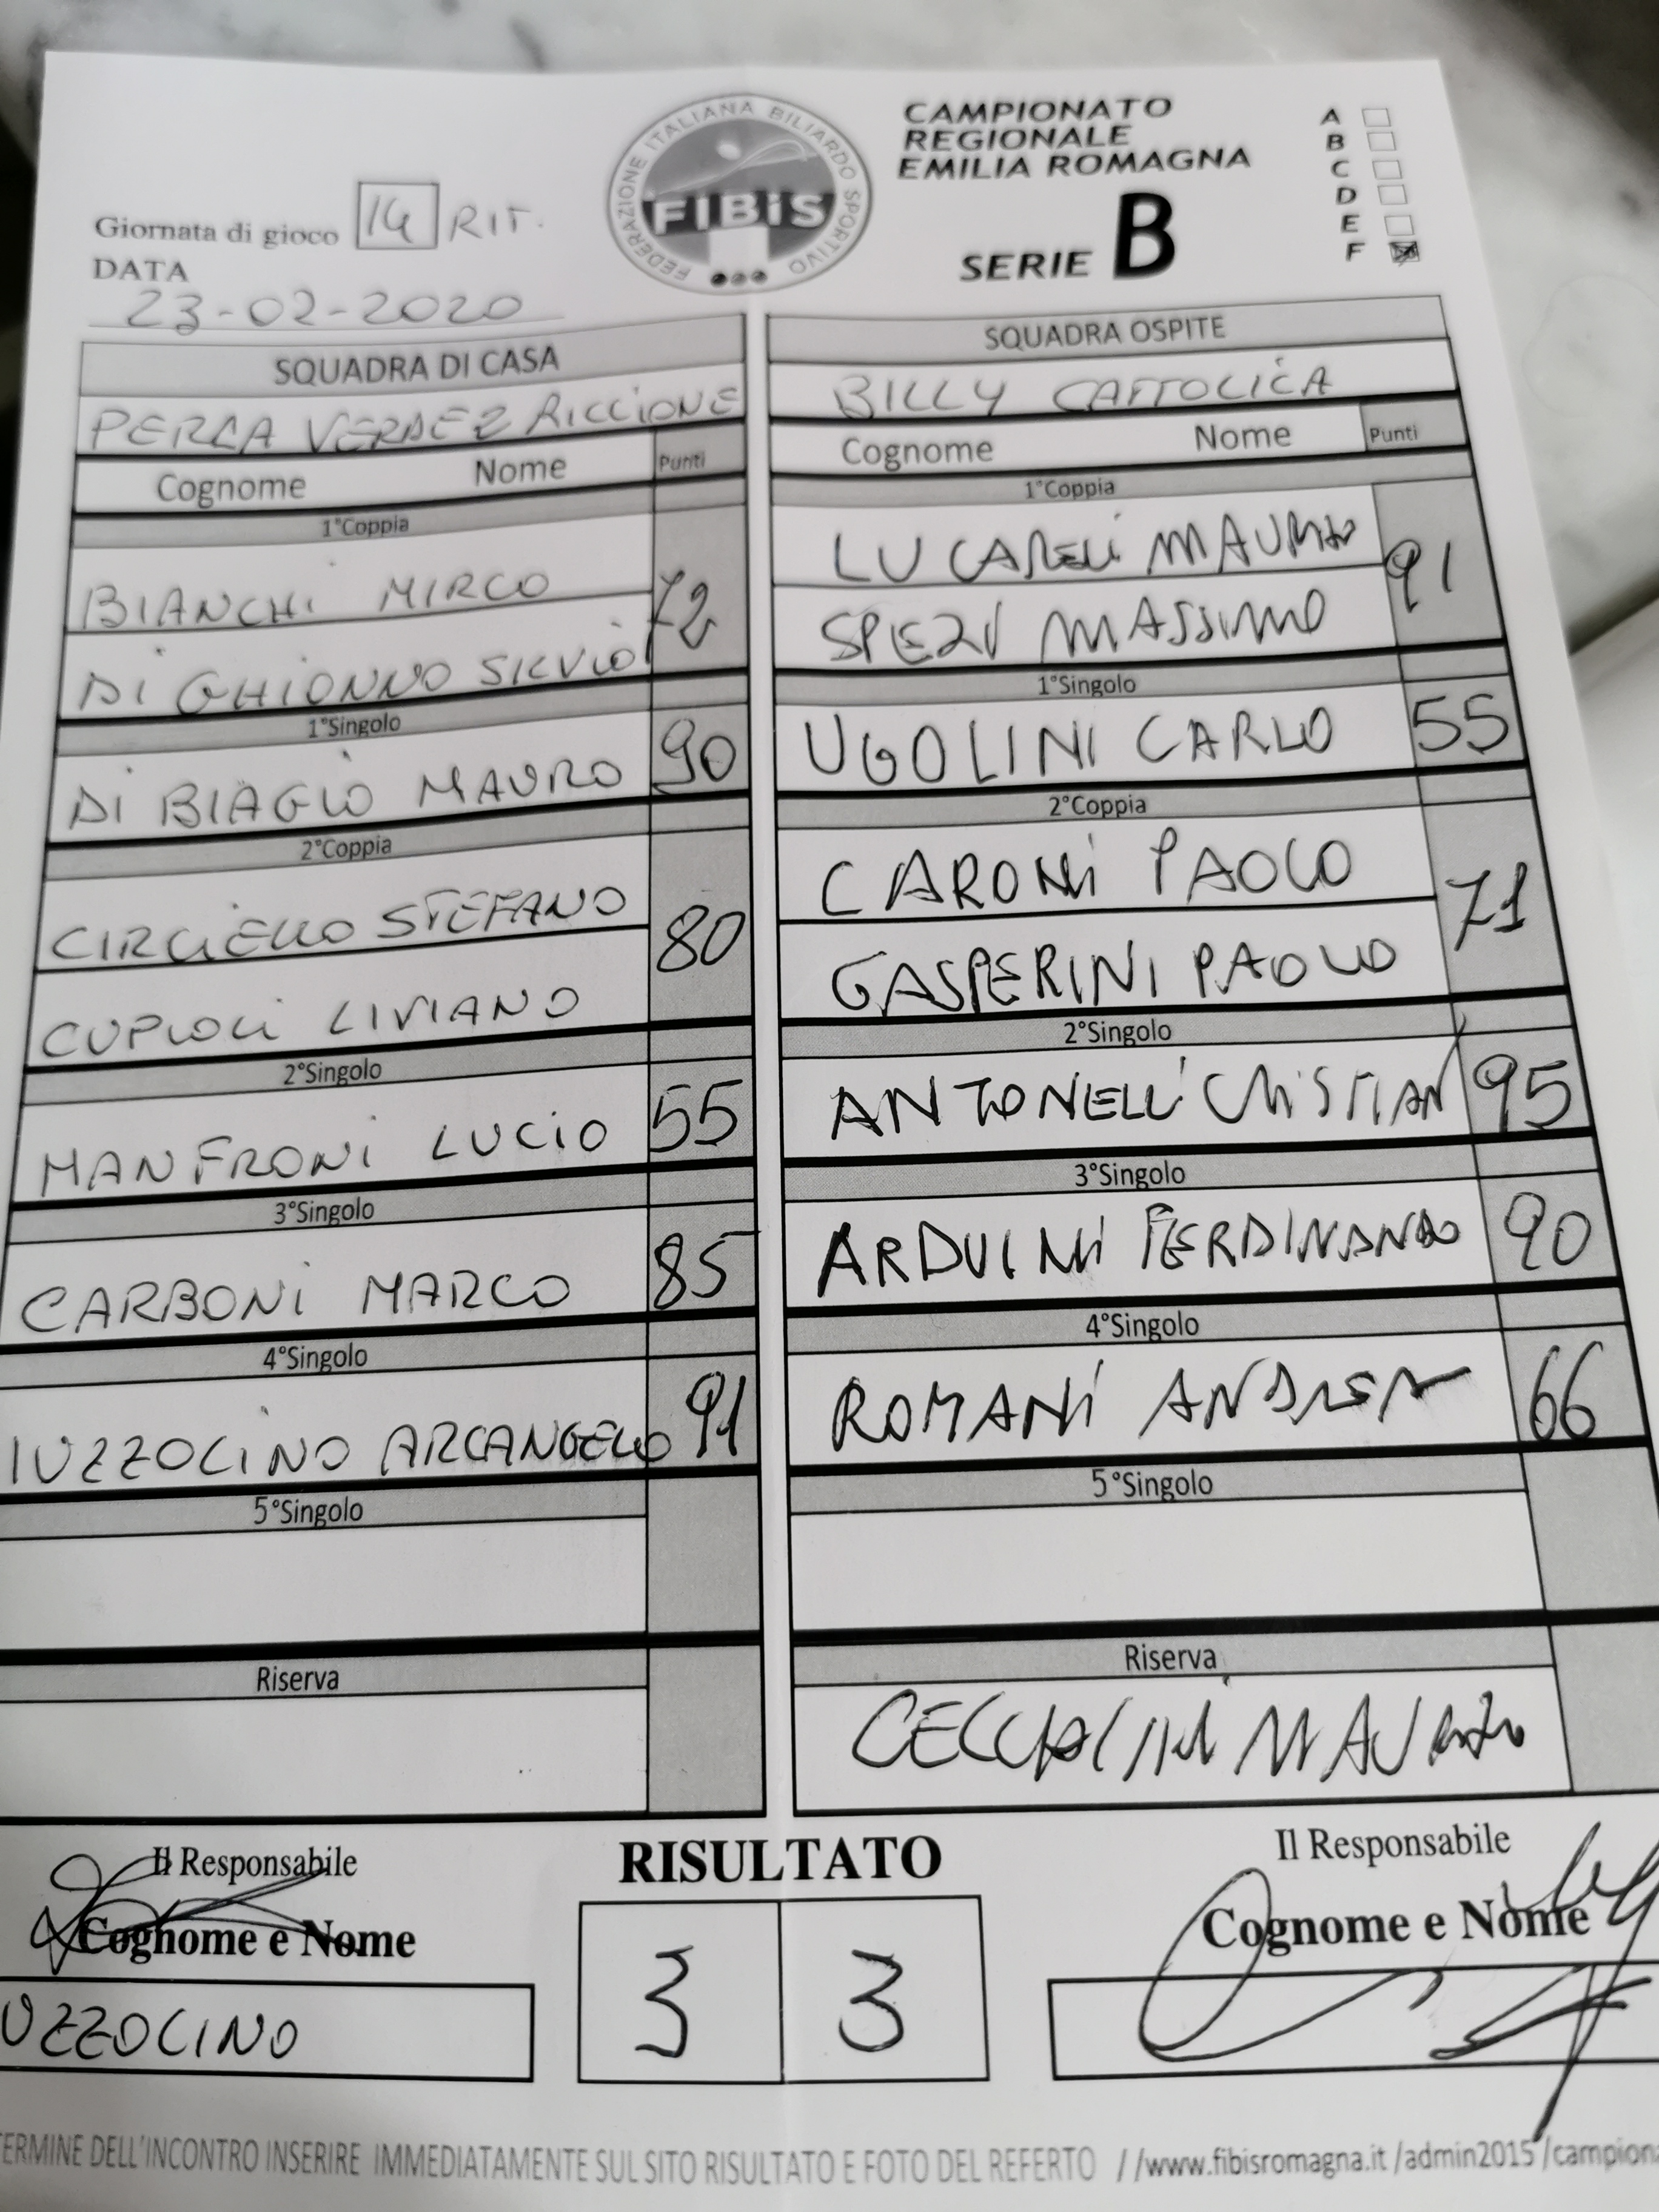 CAMPIONATO
REGIONALE
EMILIA ROMAGNA
SERIE B
A
B
C
D
E
F
FEDERAZIONE ITALIANA BILIARDO SPORTIVO
FIBiS
Giornata di gioco 14 RIT.
DATA
23-02-2020
SQUADRA DI CASA
PERLA VERDE 2 RICCIONE
Cognome Nome Punti
1°Coppia
BIANCHI MIRCO
72
DI GHIONNO SILVIO
1°Singolo
DI BIAGIO MAURO 90
2°Coppia
CIRCIELLO STEFANO
80
CUPIOLI LIVIANO
2°Singolo
MANFRONI LUCIO 55
3°Singolo
CARBONI MARCO 85
4°Singolo
IUZZOLINO ARCANGELO 91
5°Singolo
Riserva
SQUADRA OSPITE
BILLY CATTOLICA
Cognome Nome Punti
1°Coppia
LUCARELLI MAURIZIO
91
SPEZI MASSIMO
1°Singolo
UGOLINI CARLO 55
2°Coppia
CARONI PAOLO
71
GASPERINI PAOLO
2°Singolo
ANTONELLI CRISTIAN 95
3°Singolo
ARDUINI FERDINANDO 90
4°Singolo
ROMANI ANDREA 66
5°Singolo
Riserva
MAURIZIO
Il Responsabile
Cognome e Nome
UZZOLINO
RISULTATO
3 3
Il Responsabile
Cognome e Nome
TERMINE DELL'INCONTRO INSERIRE IMMEDIATAMENTE SUL SITO RISULTATO E FOTO DEL REFERTO //www.fibisromagna.it/admin2015/campion